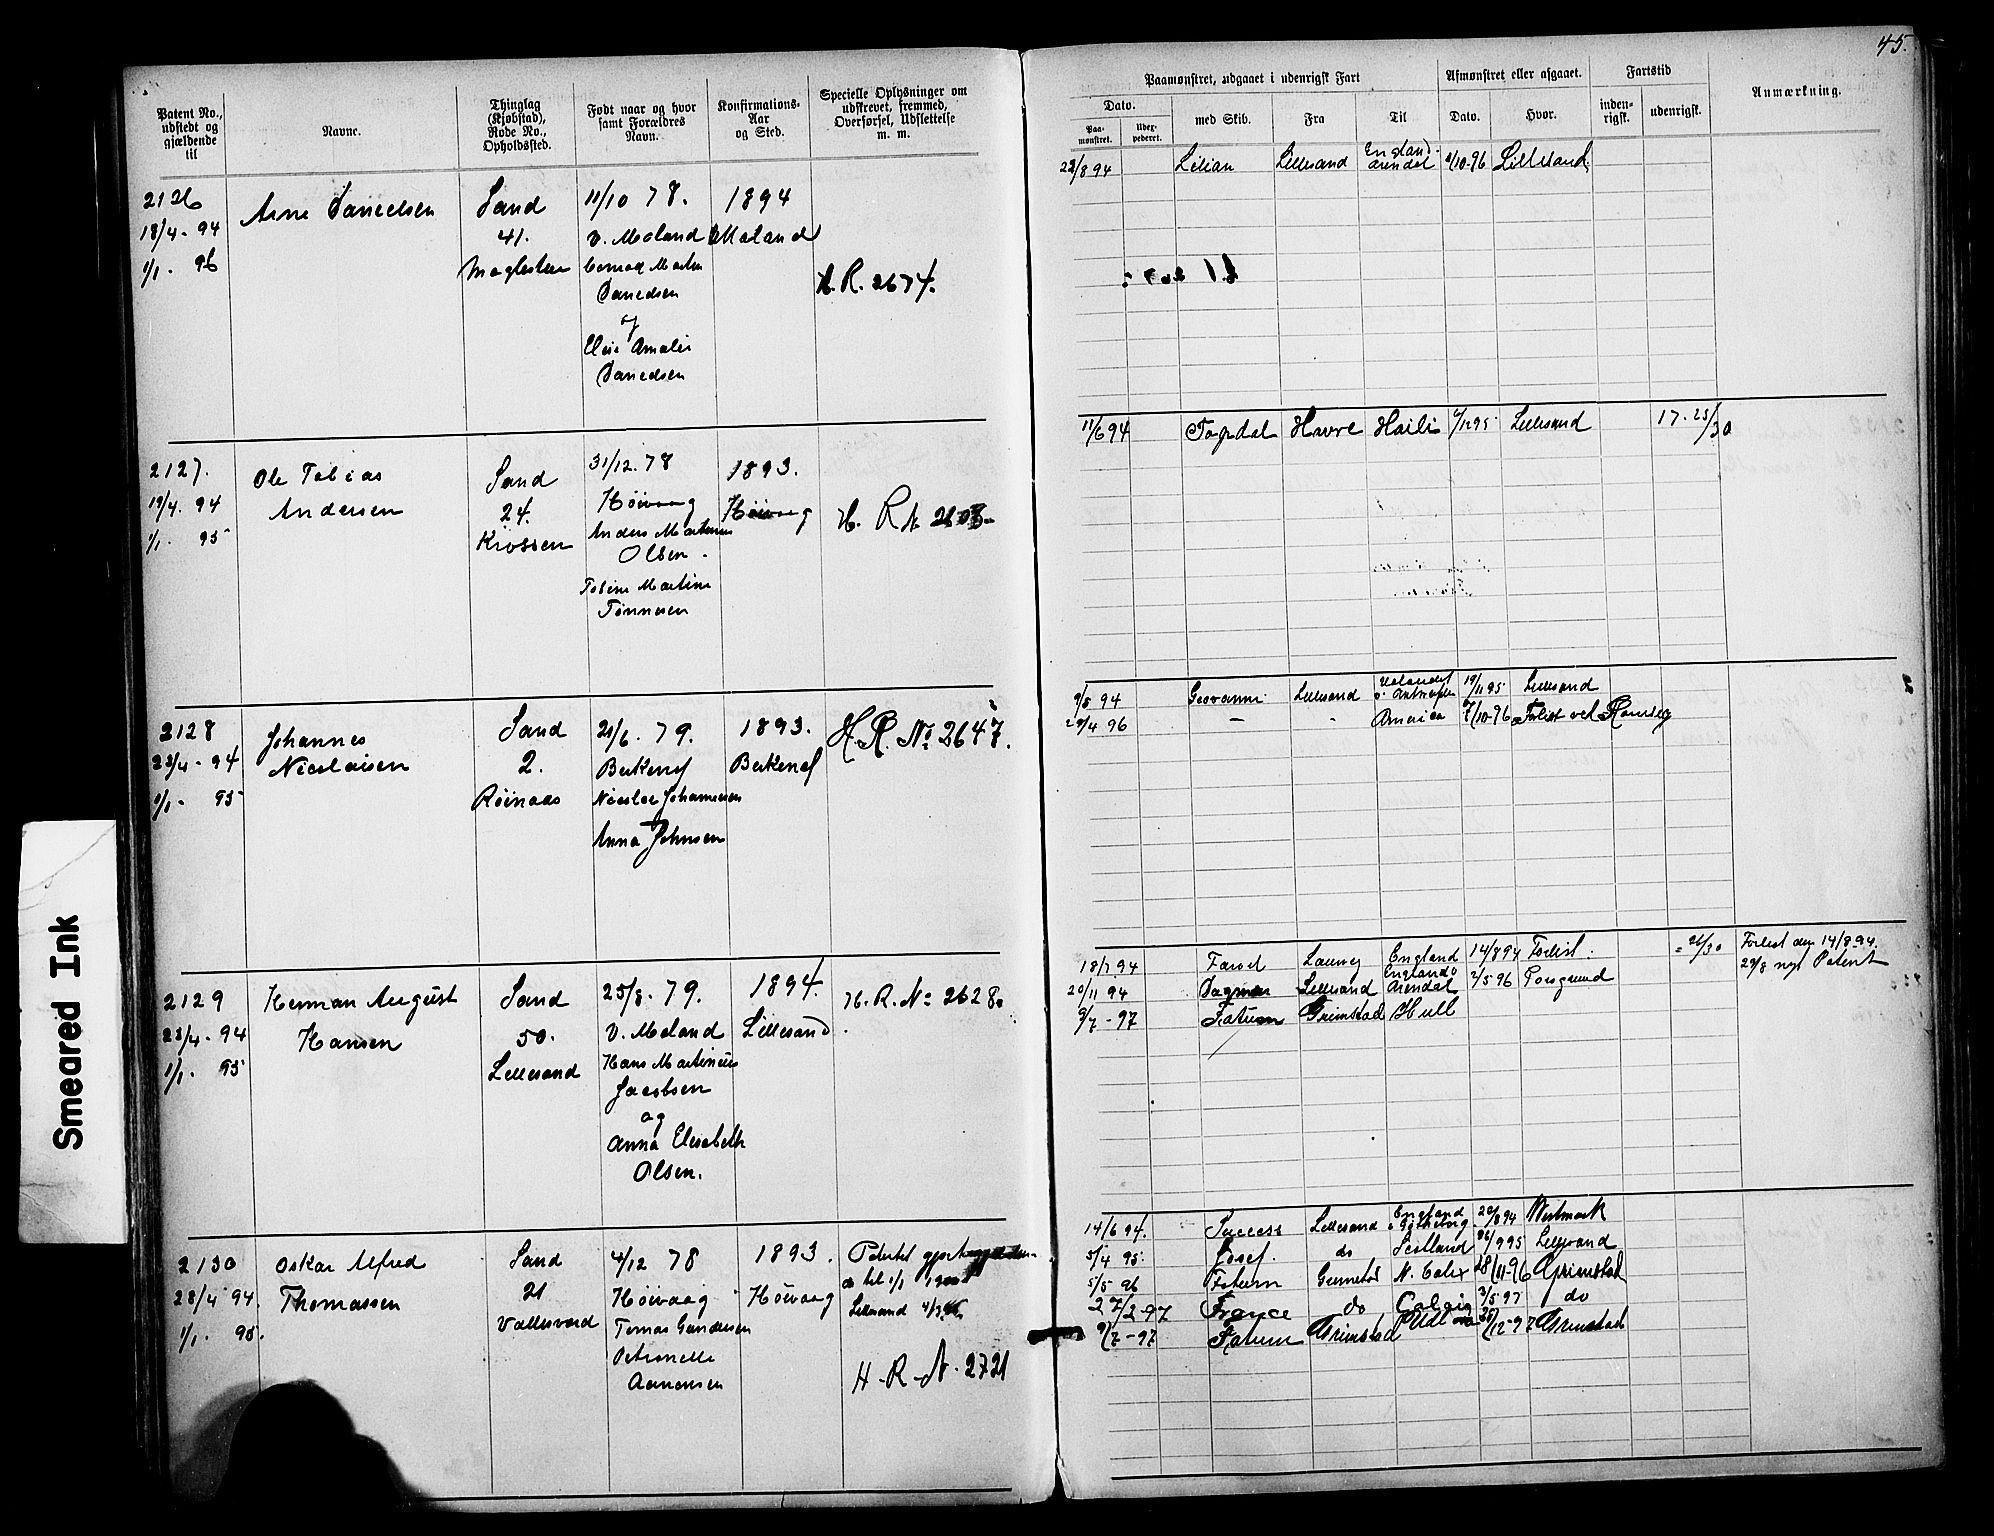 45.
Patent No., udstedt og gjældende til
Navne.
Thinglag (Kjøbstad), Rode No., Opholdssted.
Født naar og hvor samt Forældres Navn.
Konfirmations-Aar og Sted.
Specielle Oplysninger om udskrevet, fremmed, Overførsel, Udslettelse m. m.
Paamønstret, udgaaet i udenrigsk Fart
Afmønstret eller afgaaet.
Fartstid
Anmærkning.
Dato.
Paa-mønstret.
Udex-pederet.
med Skib.
Fra
Til
Dato.
Hvor.
inden-rigsk.
udenrigsk.
2126
18/4 - 94
1/1 - 96
Arne Danielsen
Sand
41.
Maglesteen
11/10 78.
V. Moland
Danielsen
og
Amalie
Danielsen
1894
Moland
H. R. 2674.
22/8 94 Lilian Lillesand England Arendal /10-96 Lillesand
2127.
19/4. 94
1/1. 95
Ole Tobias
Andersen
Sand
24.
Krossen
31/12. 78
Høivaag
Anders
Olsen.
Martine
Tønnesen
1893.
Høivaag
H. R. N
11/6 94 Havre /12 95 Lillesand 17. 25/30
2128
23/4 - 94
1/1 - 95
Johannes
Nicolaisen
Sand
2.
Røinaas
21/6. 79.
Birkenes
Nicolai Johannesen
Anna Johnsen
1893.
Birkenes
H. R. No 2647.
9/5 94 Lillesand 19/11 95 Lillesand
/4 96 - - America /10-96 Forlist ved
2129
23/4 - 94
1/1 - 95
Herman August
Hansen
Sand
50.
Lillesand
25/8. 79.
V. Moland
Hans Martinius
Jacobsen
og
Anna Elisabeth
Olsen.
1894.
Lillesand
H. R. No 2628.
18/7 94 Laurvig England 14/8 94 Forlist. 26/30 Forlist den 14/8 94.
29/8 nyt Patent
20/11 94 Dagmar Lillesand England Arendal 2/5 96 Porsgrund
9/7 - 97 Fatum Grimstad Hull
2130
28/4 94.
1/1. 95.
Oskar Alfred
Thomassen
Sand
21
Vallesværd
4/12 78
Høivaag
Tomas Gundersen
Petronelle
Aanonsen
1893.
Høivaag
Patentet
til 1/1
Lillesand
H - R - N - 2721
14/6 94. Success Lillesand England 20/8 94
5/4 95. Josef. do Scotland 26/9 95 Lillesand
5/5 96 Fatum Grimstad 28/11-96 Grimstad
27/2-97 France do 3/5 97 do
9/7-97 Fatum Grimstad Hull /12-97 Grimstad
Smeared Ink